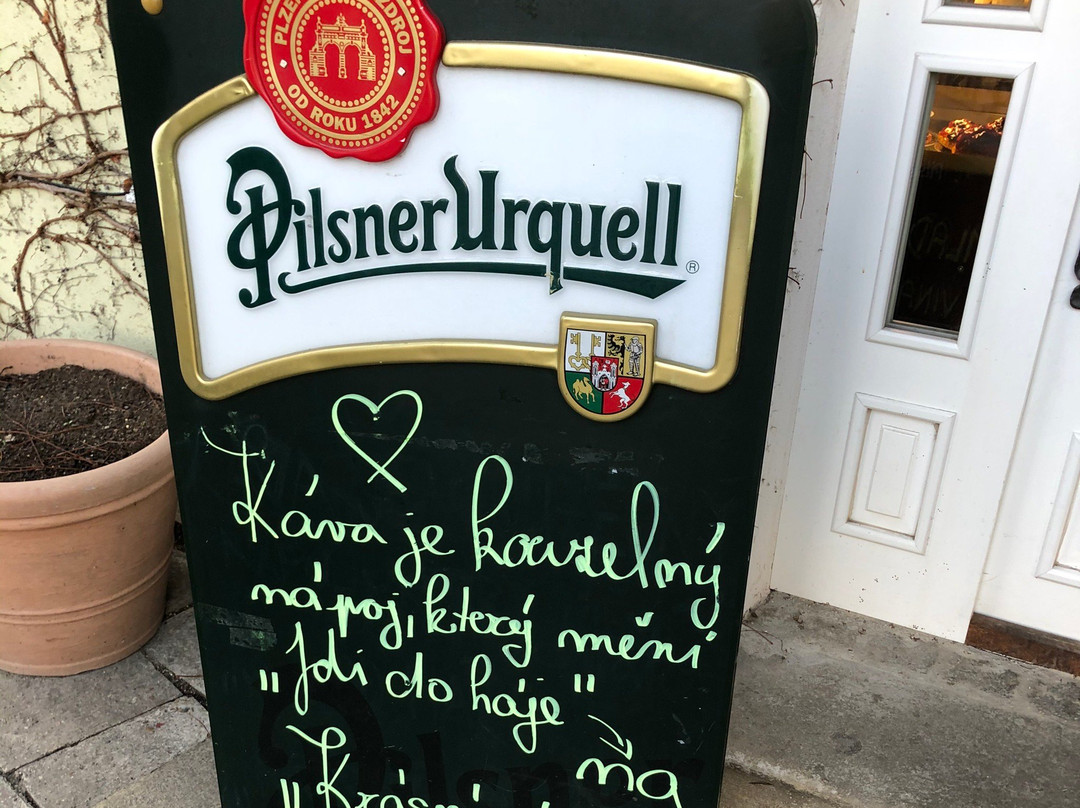 PLZEŇSKÝ PRAZDROJ
OD ROKU 1842
Pilsner Urquell ®
Káva je kouzelný
nápoj, který mění
"Jdi do háje"
na